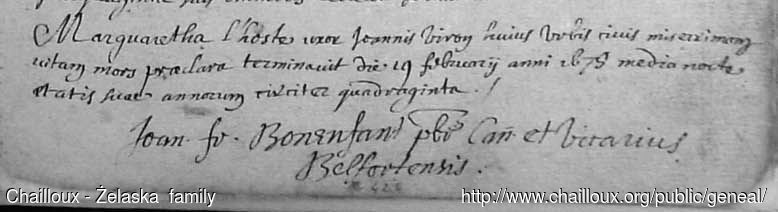 Marguaretha l'hoste uxor Joannis Viron huius Urbis civis miserrimam
vitam mors præclara terminavit die 19 februarij anni 1678 media nocte
etatis suae annorum circiter quadraginta.
Joan. fr. Bonenfant pbr Can. et vicarius
Belfortensis.
Chailloux - Żelaska family
http://www.chailloux.org/public/geneal/